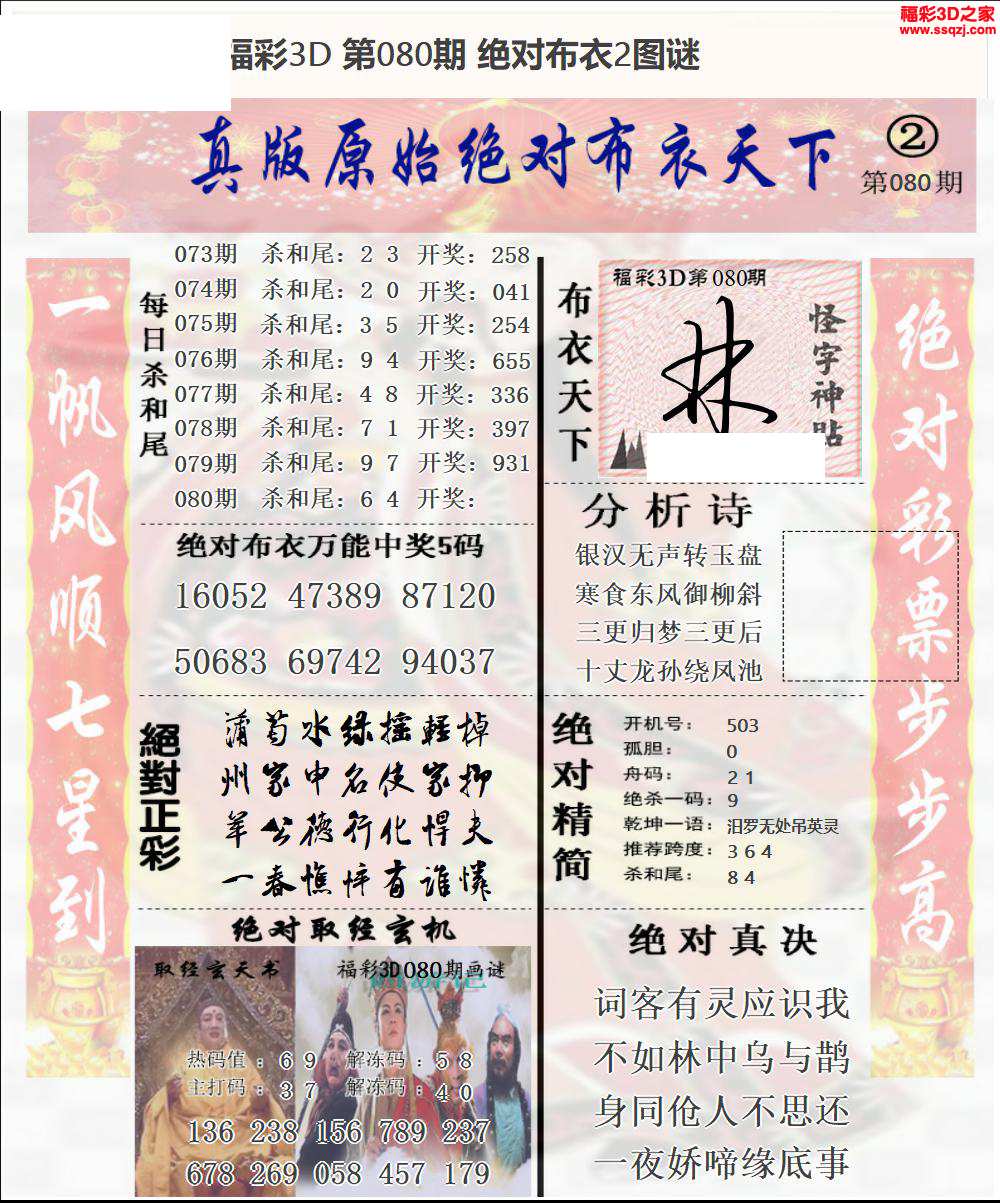 福彩3D之家
www.ssqzj.com
福彩3D 第080期 绝对布衣2图谜
真版原始绝对布衣天下
②
第080期
一帆风顺七星到
每日杀和尾
073期 杀和尾：2 3 开奖：258
074期 杀和尾：2 0 开奖：041
075期 杀和尾：3 5 开奖：254
076期 杀和尾：9 4 开奖：655
077期 杀和尾：4 8 开奖：336
078期 杀和尾：7 1 开奖：397
079期 杀和尾：9 7 开奖：931
080期 杀和尾：6 4 开奖：
绝对布衣万能中奖5码
16052 47389 87120
50683 69742 94037
絕對正彩
蒲萄水绿摇輕掉
州家申名使家抑
羊公德行化悍夫
一春憔悴有谁憐
绝对取经玄机
取经玄天书
福彩3D080期画谜
热码值：6 9 解冻码：5 8
主打码：3 7 解冻码：4 0
136 238 156 789 237
678 269 058 457 179
布衣天下
福彩3D第080期
怪字神贴
分析诗
银汉无声转玉盘
寒食东风御柳斜
三更归梦三更后
十丈龙孙绕凤池
绝对精简
开机号：503
孤胆：0
舟码：2 1
绝杀一码：9
乾坤一语：汨罗无处吊英灵
推荐跨度：3 6 4
杀和尾：8 4
绝对真决
词客有灵应识我
不如林中乌与鹊
身同伧人不思还
一夜娇啼缘底事
绝对彩票步步高